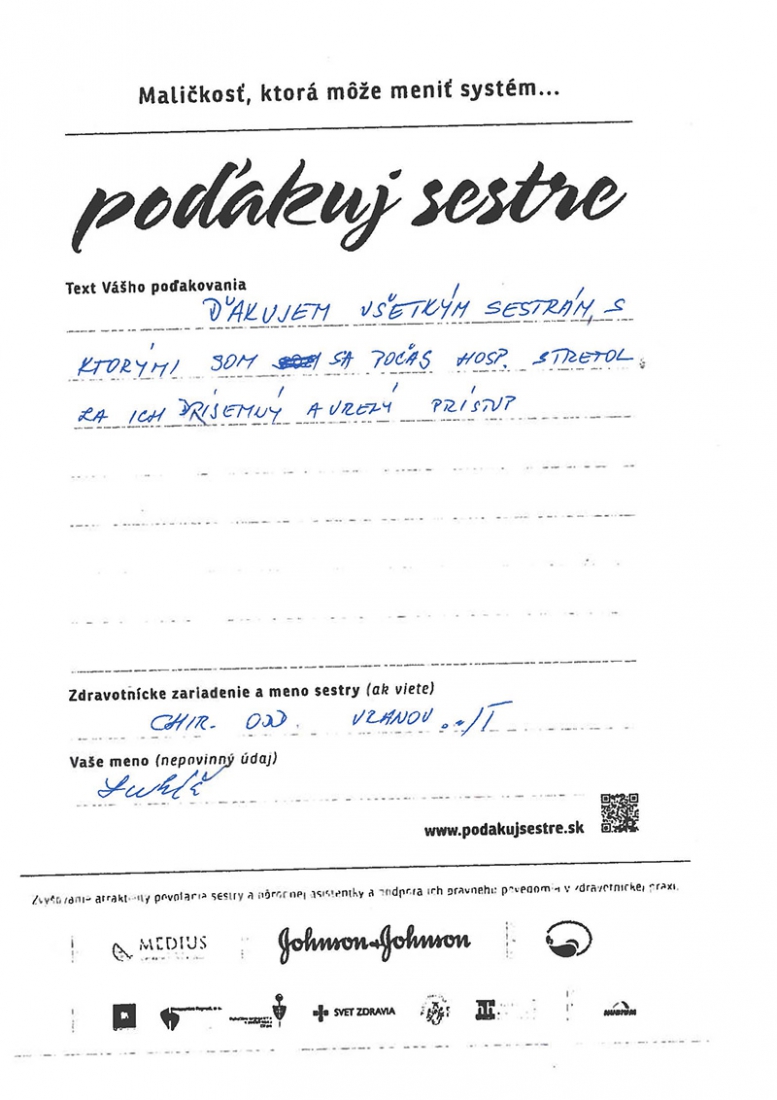 Maličkosť, ktorá môže meniť systém...
poďakuj sestre
Text Vášho poďakovania
ĎAKUJEM VŠETKÝM SESTRÁM, S
KTORÝMI SOM SA POČAS HOSP. STRETOL
ZA ICH PRÍJEMNÝ A VRELÝ PRÍSTUP
Zdravotnícke zariadenie a meno sestry (ak viete)
CHIR. ODD. VRANOV n/T
Vaše meno (nepovinný údaj)
www.podakujsestre.sk
povolania sestry a a podpora ich právneho povedomia v zdravotníckej praxi.
MEDIUS
Johnson & Johnson
SVET ZDRAVIA